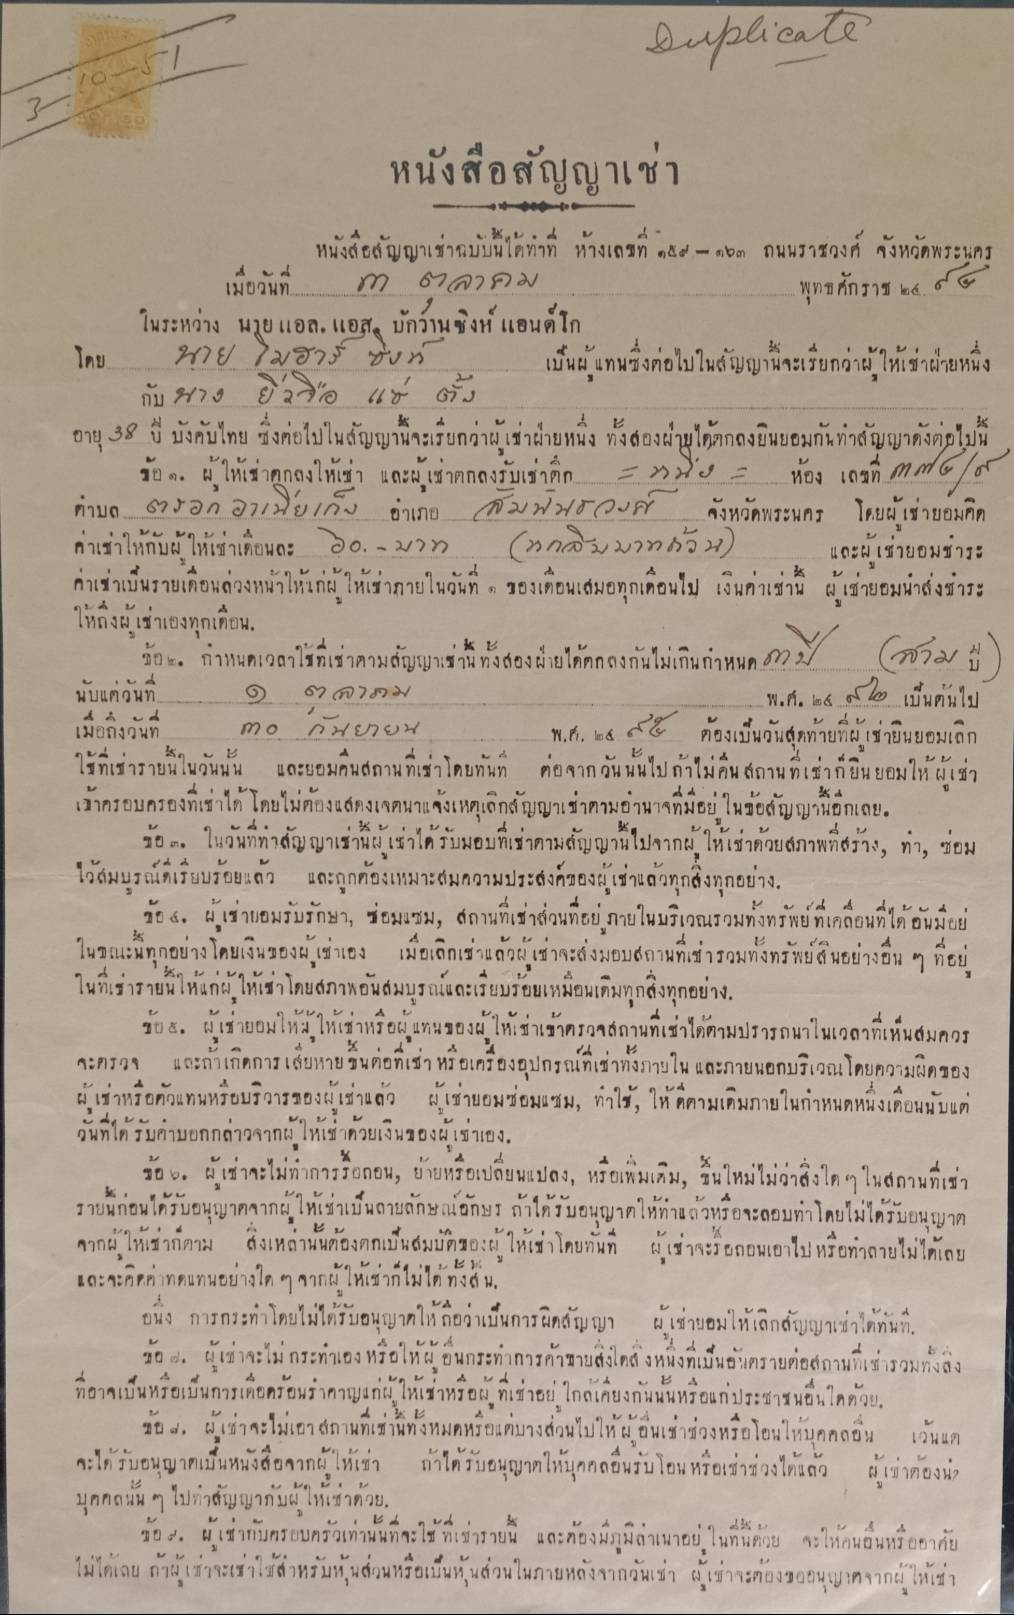 Duplicate
3-10-51
50 50
หนังสือสัญญาเช่า
หนังสือสัญญาเช่าฉบับนี้ได้ทำที่ ห้างเลขที่ ๑๕๙ — ๑๖๓ ถนนราชวงศ์ จังหวัดพระนคร
เมื่อวันที่ ๓ ตุลาคม พุทธศักราช ๒๔ ๙๔
ในระหว่าง นาย แอล. แอส. บักว้านซิงห์ แอนด์โก
โดย นาย ซิงห์ เป็นผู้แทนซึ่งต่อไปในสัญญานี้จะเรียกว่าผู้ให้เช่าฝ่ายหนึ่ง
กับ นาง แซ่ ตั้ง
อายุ 38 ปี บังคับไทย ซึ่งต่อไปในสัญญานี้จะเรียกว่าผู้เช่าฝ่ายหนึ่ง ทั้งสองฝ่ายได้ตกลงยินยอมกันทำสัญญาดังต่อไปนี้
ข้อ ๑. ผู้ให้เช่าตกลงให้เช่า และผู้เช่าตกลงรับเช่าตึก = หนึ่ง = ห้อง เลขที่ ๓๗๔/๙
ตำบล ตรอกอาเนี้ยเก็ง อำเภอ สัมพันธวงศ์ จังหวัดพระนคร โดยผู้เช่ายอมคิด
ค่าเช่าให้กับผู้ให้เช่าเดือนละ ๖๐.- บาท (หกสิบบาทถ้วน) และผู้เช่ายอมชำระ
ค่าเช่าเป็นรายเดือนล่วงหน้าให้แก่ผู้ให้เช่าภายในวันที่ ๑ ของเดือนเสมอทุกเดือนไป เงินค่าเช่านี้ ผู้เช่ายอมนำส่งชำระ
ให้ถึงผู้เช่าเองทุกเดือน.
ข้อ ๒. กำหนดเวลาใช้ที่เช่าตามสัญญาเช่านี้ ทั้งสองฝ่ายได้ตกลงกันไม่เกินกำหนด ๓ปี (สาม ปี)
นับแต่วันที่ ๑ ตุลาคม พ.ศ. ๒๔ ๙๒ เป็นต้นไป
เมื่อถึงวันที่ ๓๐ กันยายน พ.ศ. ๒๔ ๙๕ ต้องเป็นวันสุดท้ายที่ผู้เช่ายินยอมเลิก
ใช้ที่เช่ารายนี้ในวันนั้น และยอมคืนสถานที่เช่าโดยทันที ต่อจากวันนั้นไปถ้าไม่คืนสถานที่เช่าก็ยินยอมให้ผู้เช่า
เข้าครอบครองที่เช่าได้ โดยไม่ต้องแสดงเจตนาแจ้งเหตุเลิกสัญญาเช่าตามอำนาจที่มีอยู่ในข้อสัญญานี้อีกเลย.
ข้อ ๓. ในวันที่ทำสัญญาเช่านี้ผู้เช่าได้รับมอบที่เช่าตามสัญญานี้ไปจากผู้ให้เช่าด้วยสภาพที่สร้าง, ทำ, ซ่อม
ไว้สมบูรณ์ดีเรียบร้อยแล้ว และถูกต้องเหมาะสมความประสงค์ของผู้เช่าแล้วทุกสิ่งทุกอย่าง.
ข้อ ๔. ผู้เช่ายอมรับรักษา, ซ่อมแซม, สถานที่เช่าส่วนที่อยู่ภายในบริเวณรวมทั้งทรัพย์ที่เคลื่อนที่ได้อันมีอยู่
ในขณะนี้ทุกอย่างโดยเงินของผู้เช่าเอง เมื่อเลิกเช่าแล้วผู้เช่าจะส่งมอบสถานที่เช่ารวมทั้งทรัพย์สินอย่างอื่น ๆ ที่อยู่
ในที่เช่ารายนี้ให้แก่ผู้ให้เช่าโดยสภาพอันสมบูรณ์และเรียบร้อยเหมือนเดิมทุกสิ่งทุกอย่าง.
ข้อ ๕. ผู้เช่ายอมให้ผู้ให้เช่าหรือผู้แทนของผู้ให้เช่าเข้าตรวจสถานที่เช่าได้ตามปรารถนาในเวลาที่เห็นสมควร
จะตรวจ และถ้าเกิดการเสียหายขึ้นต่อที่เช่า หรือเครื่องอุปกรณ์ที่เช่าทั้งภายใน และภายนอกบริเวณโดยความผิดของ
ผู้เช่าหรือตัวแทนหรือบริวารของผู้เช่าแล้ว ผู้เช่ายอมซ่อมแซม, ทำใช้, ให้ดีตามเดิมภายในกำหนดหนึ่งเดือนนับแต่
วันที่ได้รับคำบอกกล่าวจากผู้ให้เช่าด้วยเงินของผู้เช่าเอง.
ข้อ ๖. ผู้เช่าจะไม่ทำการรื้อถอน, ย้ายหรือเปลี่ยนแปลง, หรือเพิ่มเติม, ขึ้นใหม่ไม่ว่าสิ่งใด ๆ ในสถานที่เช่า
รายนี้ก่อนได้รับอนุญาตจากผู้ให้เช่าเป็นลายลักษณ์อักษร ถ้าได้รับอนุญาตให้ทำแล้วหรือจะลอบทำโดยไม่ได้รับอนุญาต
จากผู้ให้เช่าก็ตาม สิ่งเหล่านั้นต้องตกเป็นสมบัติของผู้ให้เช่าโดยทันที ผู้เช่าจะรื้อถอนเอาไปหรือทำลายไม่ได้เลย
และจะคิดค่าทดแทนอย่างใด ๆ จากผู้ให้เช่าก็ไม่ได้ทั้งสิ้น.
อนึ่ง การกระทำโดยไม่ได้รับอนุญาตให้ถือว่าเป็นการผิดสัญญา ผู้เช่ายอมให้เลิกสัญญาเช่าได้ทันที.
ข้อ ๗. ผู้เช่าจะไม่กระทำเองหรือให้ผู้อื่นกระทำการค้าขายสิ่งใดสิ่งหนึ่งที่เป็นอันตรายต่อสถานที่เช่ารวมทั้งสิ่ง
ที่อาจเป็นหรือเป็นการเดือดร้อนรำคาญแก่ผู้ให้เช่าหรือผู้ที่เช่าอยู่ใกล้เคียงกันนั้นหรือแก่ประชาชนอื่นใดด้วย.
ข้อ ๘. ผู้เช่าจะไม่เอาสถานที่เช่านี้ทั้งหมดหรือแต่บางส่วนไปให้ผู้อื่นเช่าช่วงหรือโอนให้บุคคลอื่น เว้นแต่
จะได้รับอนุญาตเป็นหนังสือจากผู้ให้เช่า ถ้าได้รับอนุญาตให้บุคคลอื่นรับโอนหรือเช่าช่วงได้แล้ว ผู้เช่าต้องนำ
บุคคลนั้น ๆ ไปทำสัญญากับผู้ให้เช่าด้วย.
ข้อ ๙. ผู้เช่ากับครอบครัวเท่านั้นที่จะใช้ที่เช่ารายนี้ และต้องมีภูมิลำเนาอยู่ในที่นี้ด้วย จะให้คนอื่นหรืออาศัย
ไม่ได้เลย ถ้าผู้เช่าจะเช่าใช้สำหรับหุ้นส่วนหรือเป็นหุ้นส่วนในภายหลังจากวันเช่า ผู้เช่าจะต้องขออนุญาตจากผู้ให้เช่า